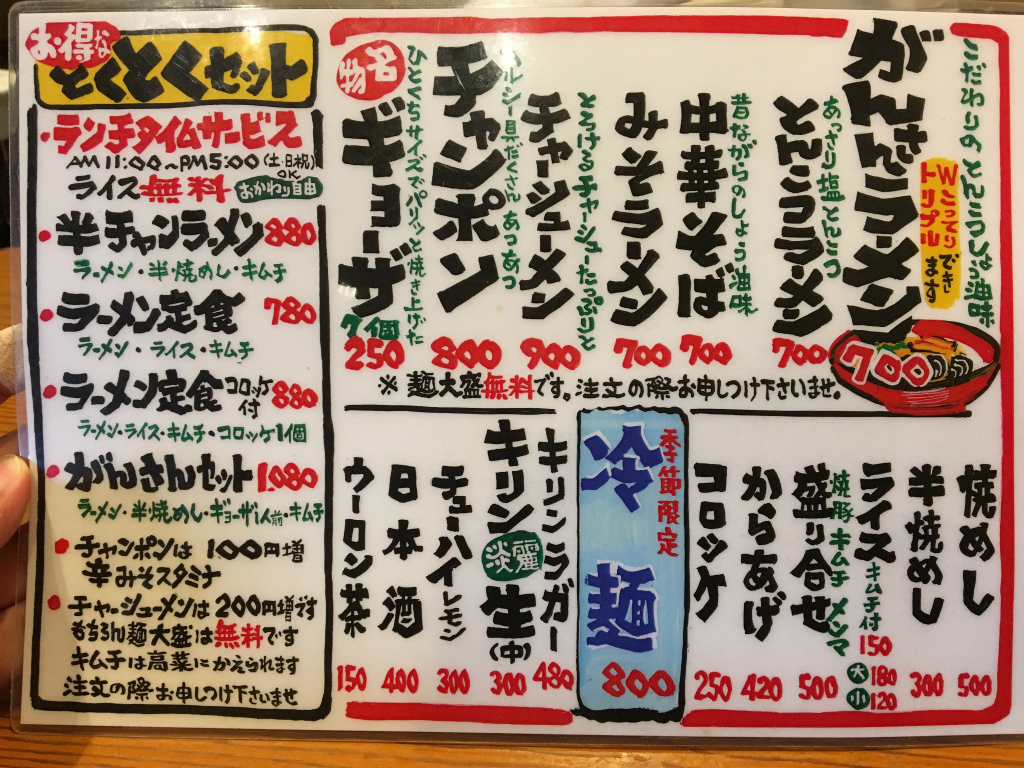 お得な
とくとくセット
・ランチタイムサービス
AM 11:00~PM5:00(土・日祝)OK
ライス無料 おかわり自由
・半チャンラーメン 880
ラーメン・半焼めし・キムチ
・ラーメン定食 780
ラーメン・ライス・キムチ
・ラーメン定食 コロッケ付 880
ラーメン・ライス・キムチ・コロッケ1個
・がんさんセット 1,080
ラーメン・半焼めし・ギョーザ1人前・キムチ
・チャンポンは 100円増
辛みそスタミナ
・チャーシューメンは200円増です
もちろん麺大盛は無料です
キムチは高菜にかえられます
注文の際お申しつけ下さいませ
こだわりのとんこつしょう油味
がんさんラーメン
Wこってり
トリプル
できます
700
あっさり塩とんこつ
とんこつラーメン
700
昔ながらのしょう油味
中華そば
700
みそラーメン
700
とろけるチャーシューたっぷりと
チャーシューメン
900
ヘルシー具だくさんあつあつ
チャンポン
800
名物
ひとくちサイズでパリッと焼き上げた
ギョーザ
7個
250
※ 麺大盛無料です。注文の際お申しつけ下さいませ。
焼めし
500
半焼めし
300
ライス
キムチ付
150
大180
小120
焼豚キムチメンマ
盛り合せ
500
からあげ
420
コロッケ
250
季節限定
冷麺
800
キリンラガー
480
キリン淡麗生(中)
300
チューハイレモン
300
日本酒
400
ウーロン茶
150